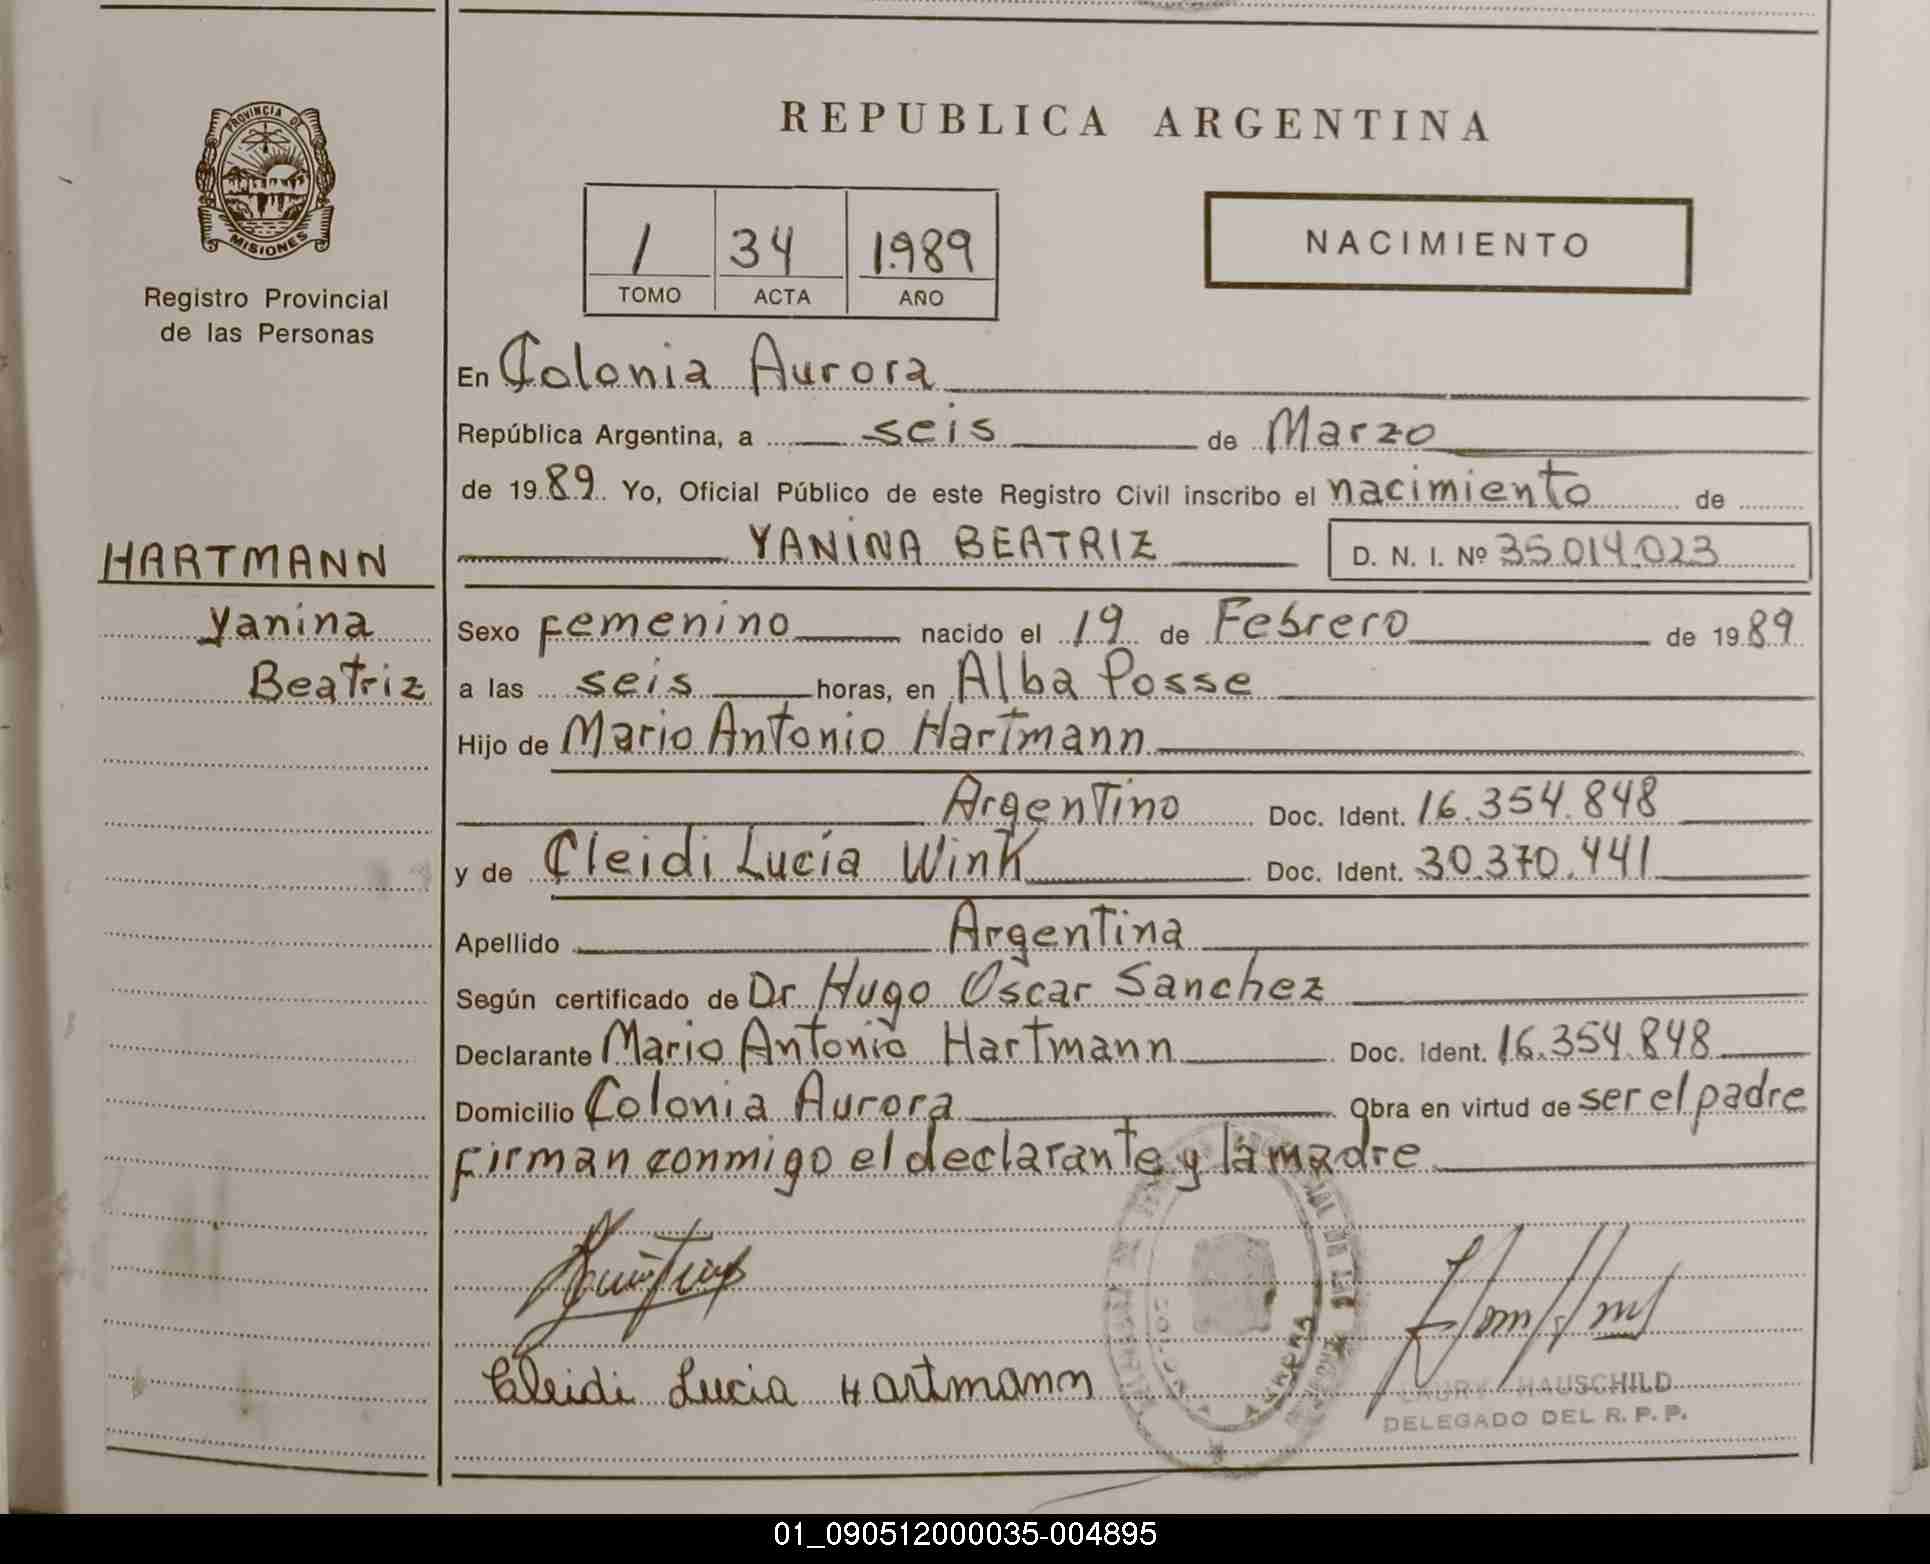 REPUBLICA ARGENTINA
PROVINCIA DE
MISIONES
Registro Provincial
de las Personas
1 34 1.989
TOMO ACTA AÑO
NACIMIENTO
En Colonia Aurora
República Argentina, a seis de Marzo
de 1989 Yo, Oficial Público de este Registro Civil inscribo el nacimiento de
HARTMANN
Yanina
Beatriz
YANINA BEATRIZ D. N. I. Nº 35.014.023
Sexo femenino nacido el 19 de Febrero de 1989
a las seis horas, en Alba Posse
Hijo de Mario Antonio Hartmann
Argentino Doc. Ident. 16.354.848
y de Cleidi Lucía Wink Doc. Ident. 30.370.441
Apellido Argentina
Según certificado de Dr. Hugo Oscar Sanchez
Declarante Mario Antonio Hartmann Doc. Ident. 16.354.848
Domicilio Colonia Aurora Obra en virtud de ser el padre
firman conmigo el declarante y la madre
Cleidi Lucia Hartmann
COLONIA AURORA
LAURY HAUSCHILD
DELEGADO DEL R. P. P.
01_090512000035-004895